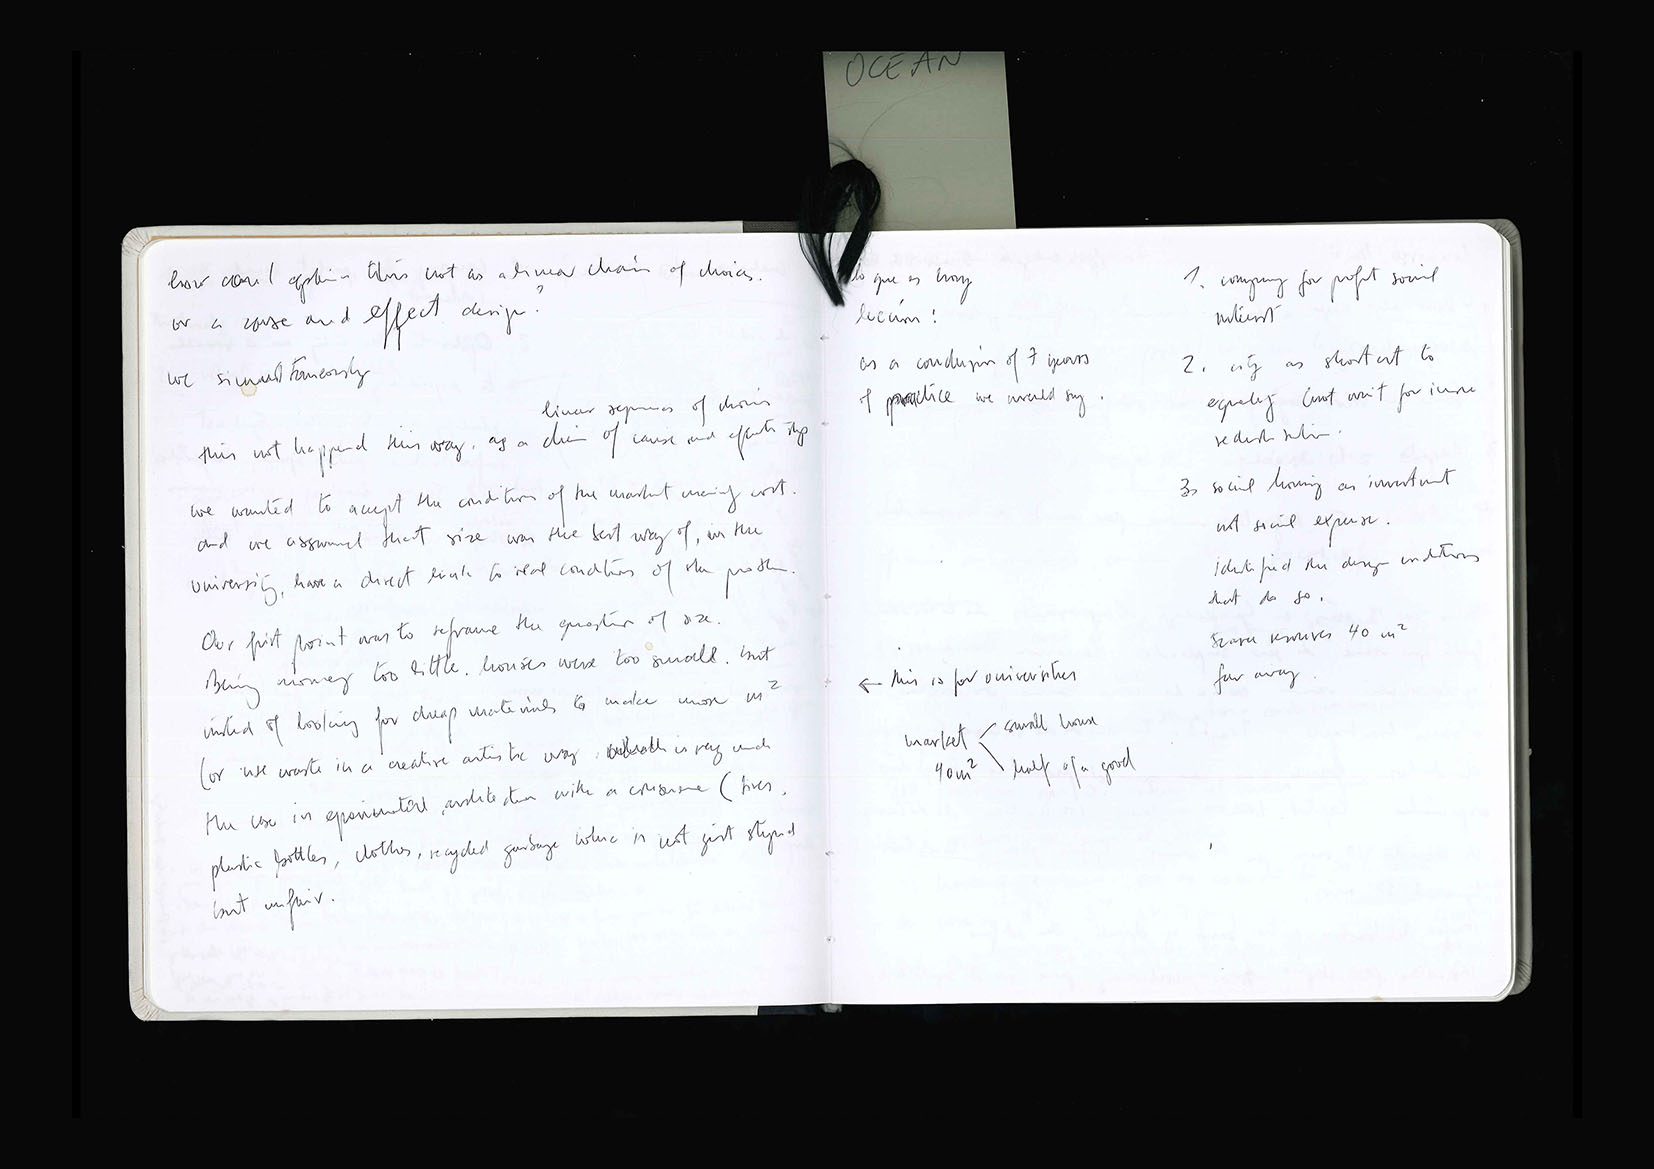 OCEAN
how can I explain this not as a linear chain of choices.
or a cause and effect design?
we simultaneously
linear sequences of choices
this not happend this way. as a chain of cause and effects
we wanted to accept the conditions of the market cost.
and we assumed that size was the best way of, in the
university, have a direct link to real conditions of the problem.
Our first point was to reframe the question of size.
Being money too little. houses were too small. but
insted of looking for cheap materials to make more m²
(or use waste in a creative artistic way, is very much
the case in experimental architecture with a (tires,
plastic bottles, clothes, recycled garbage which is not just stupid
but unfair.
lo que es hoy
as a conclusion of 7 years
of practice we would say.
← this is for universities
market small house
40m² half of a good
1. company for profit social
interest
2. city as shortcut to
equality (not wait for income
redistribution.
3. social housing as investment
not social expense.
identified the design conditions
that do so.
scarce resources 40 m²
far away.